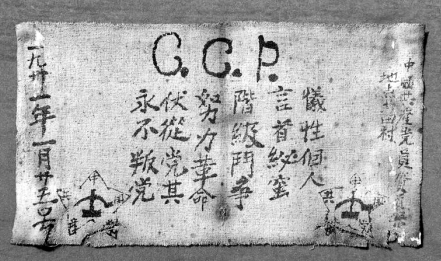 C.C.P.
中國共產党員
地點北田村
犧性個人
言首秘蜜
階級鬥争
努力革命
伏從党其
永不叛党
一九卅一年一月廿五号